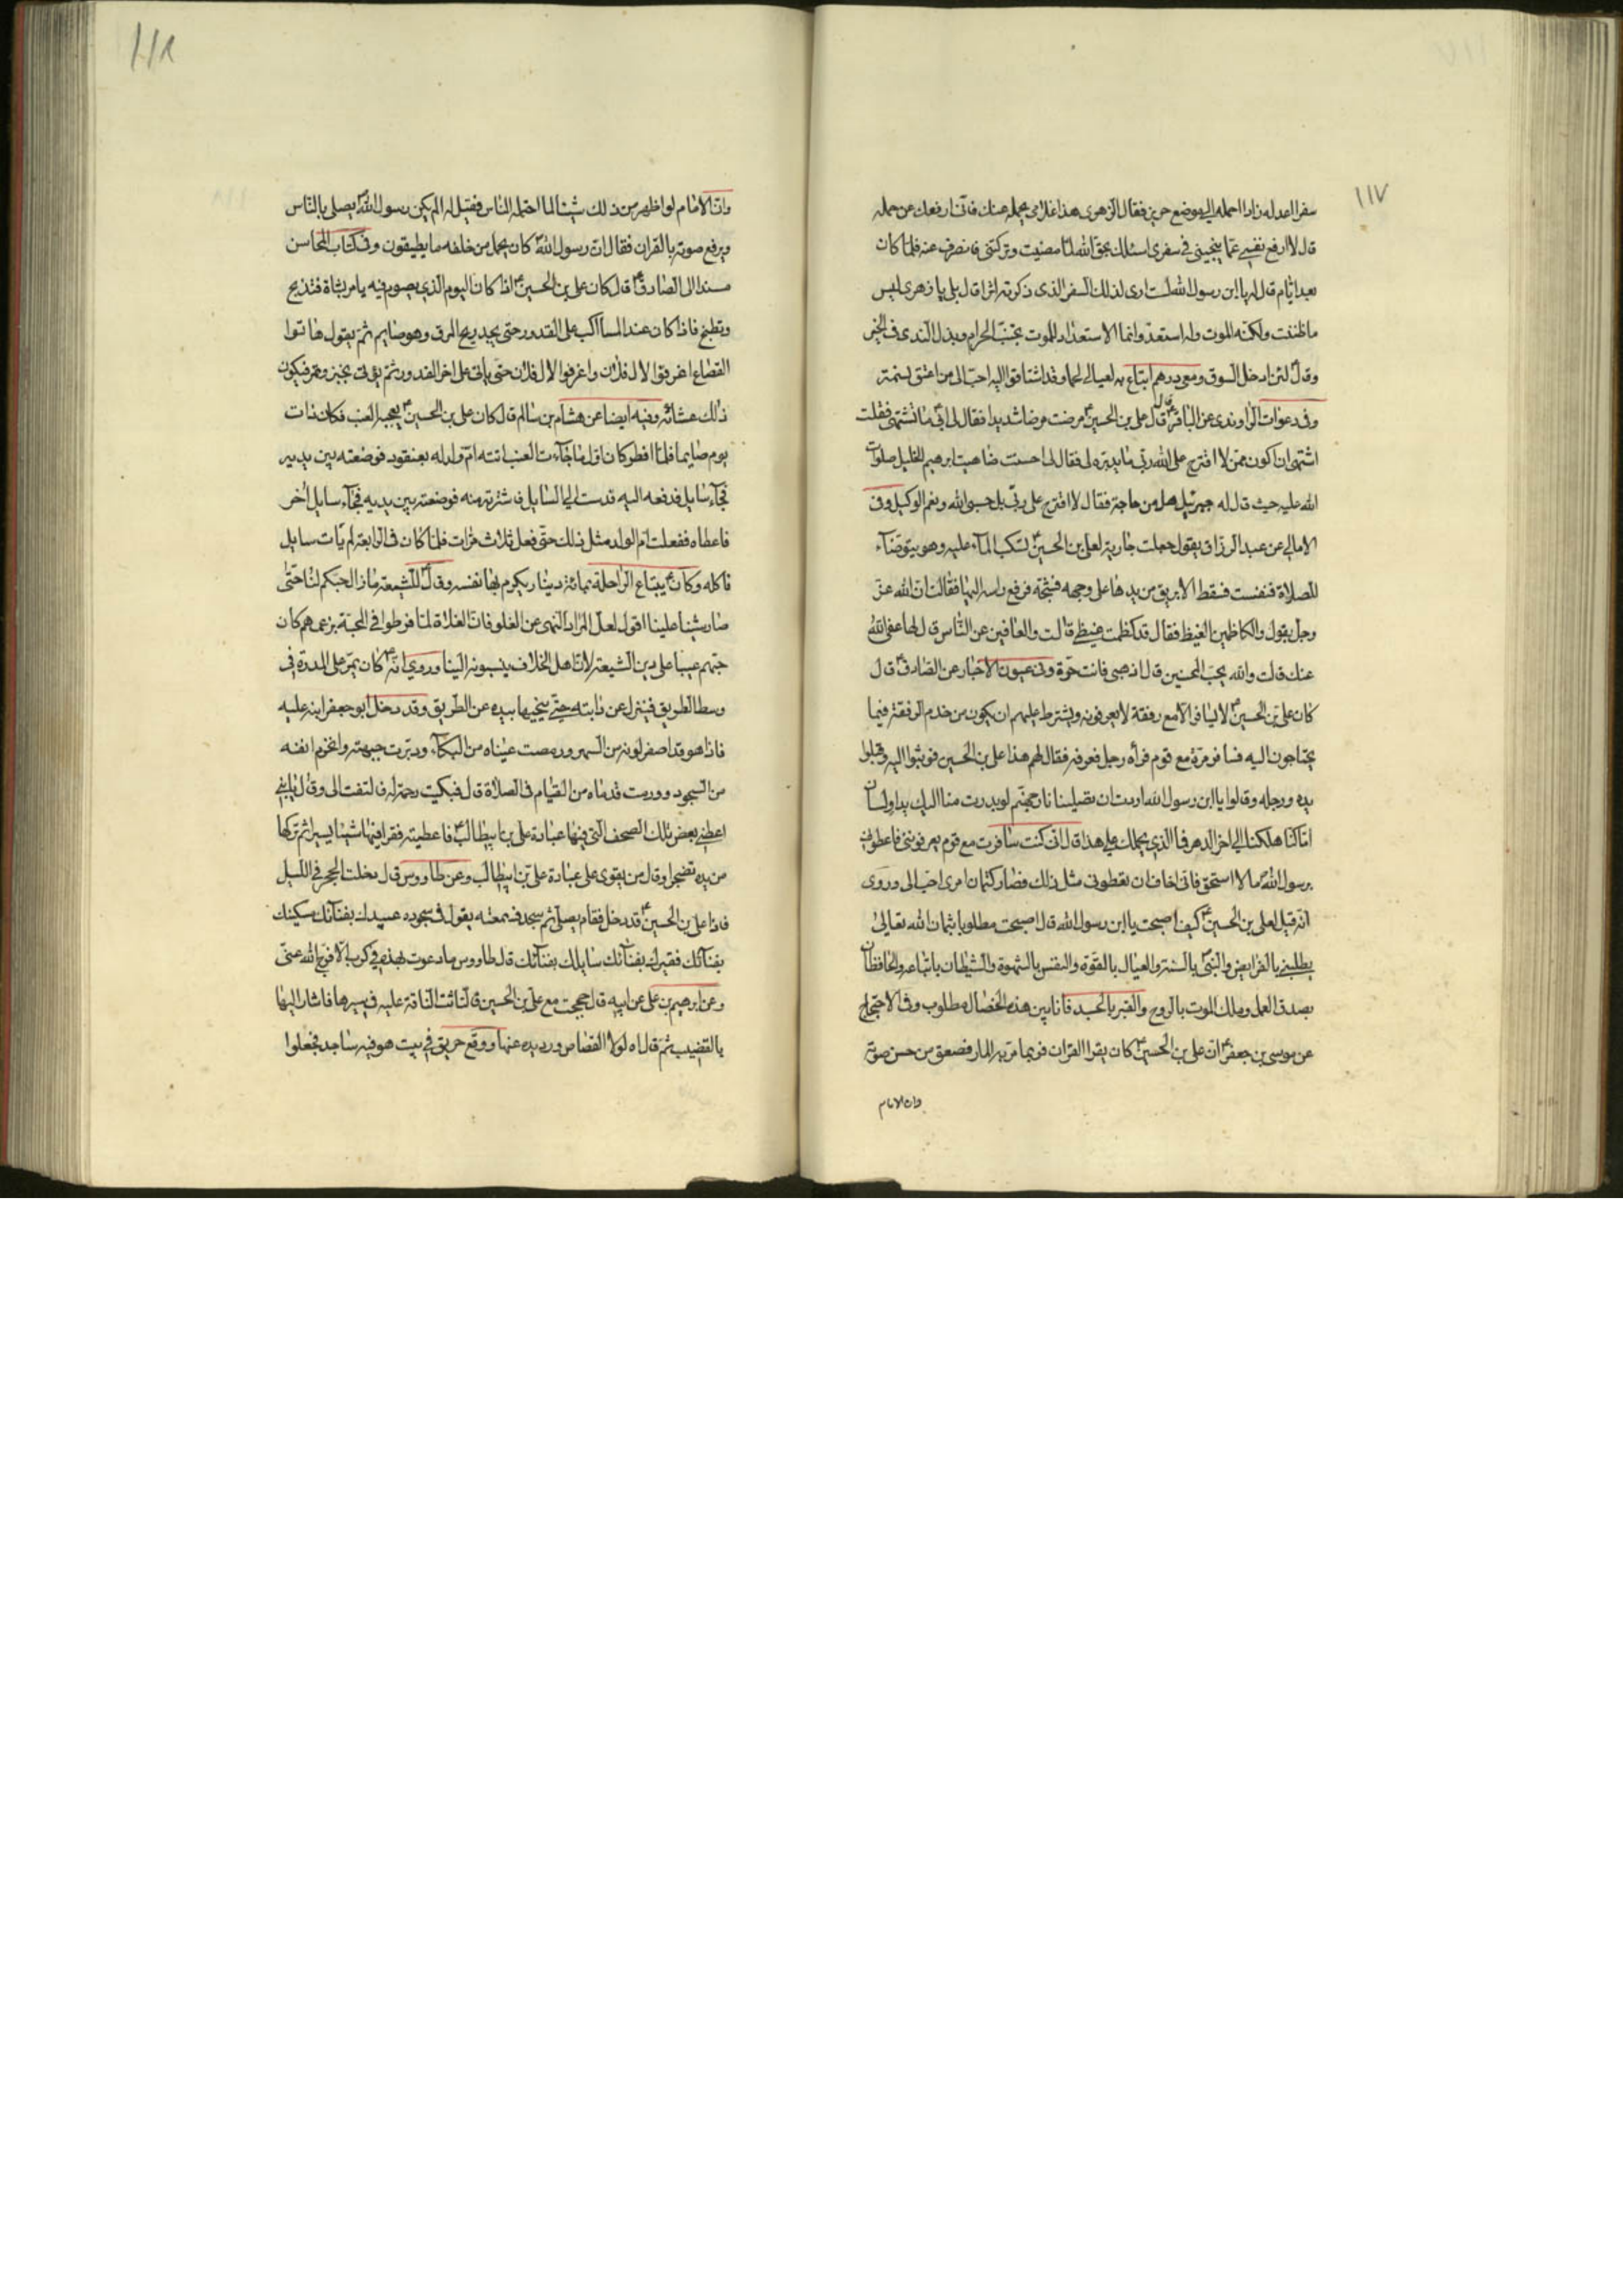 ١١٧
سفرا اعد له زادا احمله الى موضع حريز فقال الزهرى هذا غلامى يحمله عنك فانى ارفعك عن حمله
قال لا ارفع نفسى عما ينجينى فى سفرى اسئلك بحق الله لما مضيت وتركتنى فانصرف عنه فلما كان
بعد ايام قال له يا ابن رسول الله لست ارى لذلك السفر الذى ذكرته اثرا قال بلى يا زهرى ليس
ما ظننت ولكنه الموت وله استعد وانما الاستعداد للموت تجنب الحرام وبذل الندى فى الخير
وقال لئن ادخل السوق ومعى درهم ابتاع به لعيالى لحما وقد اشتاقوا اليه احب الى من اعتق نسمة
وفى دعوات الراوندى عن الباقر ع قال قال على بن الحسين ع مرضت مرضا شديدا فقال لى ابى ما تشتهى فقلت
اشتهى ان اكون ممن لا اقترح على الله ربى ما يدبره لى فقال لى احسنت ضاهيت ابرهيم الخليل صلوات
الله عليه حيث قال له جبرئيل هل من حاجة فقال لا اقترح على ربى بل حسبى الله ونعم الوكيل وفى
الامالى عن عبد الرزاق يقول جعلت جارية لعلى بن الحسين ع تسكب الماء عليه وهو يتوضاء
للصلاة فنعست فسقط الابريق من يدها على وجهه فشجه فرفع راسه اليها فقالت ان الله عز
وجل يقول والكاظمين الغيظ فقال قد كظمت غيظى قالت والعافين عن الناس قال لها عفى الله
عنك قالت والله يحب المحسنين قال اذهبى فانت حرة وفى عيون الاخبار عن الصادق ع قال
كان على بن الحسين ع لا يسافر الا مع رفقة لا يعرفونه ويشترط عليهم ان يكون من خدم الرفقة فيما
يحتاجون اليه فسافر مرة مع قوم فرأه رجل فعرفه فقال لهم هذا على بن الحسين فوثبوا اليه وقبلوا
يده ورجله وقالوا يا ابن رسول الله اردت ان تصلينا نار جهنم لو بدرت منا اليك يد او لسان
اما كنا هلكنا الى اخر الدهر فما الذى يحملك على هذا قال انى كنت سافرت مع قوم يعرفوننى فاعطونى
برسول الله ص ما لا استحق فانى اخاف ان تعطونى مثل ذلك فصار كتمان امرى احب الى وروى
انه قيل لعلى بن الحسين ع كيف اصبحت يا ابن رسول الله قال اصبحت مطلوبا بثمان الله تعالى
يطلبنى بالفرايض والنبى ص بالسنة والعيال بالقوة والنفس بالشهوة والشيطان باتباعه والحافظان
بصدق العمل وملك الموت بالروح والقبر بالجسد فانا بين هذه الخصال مطلوب وفى الاحتجاج
عن موسى بن جعفر ع ان على بن الحسين ع كان يقرا القران فربما مر به المار فصعق من حسن صوته
وان الامام
١١٨
وان الامام لو اظهر من ذلك شيئا لما احتمله الناس فقيل له الم يكن رسول الله ص يصلى بالناس
ويرفع صوته بالقران فقال ان رسول الله ص كان يحمل من خلفه ما يطيقون وفى كتاب المحاسن
مسندا الى الصادق ع قال كان على بن الحسين ع اذا كان اليوم الذى يصوم فيه يامر بشاة فتذبح
وتطبخ فاذا كان عند المسا اكب على القدور حتى يجد ريح المرق وهو صايم ثم يقول هاتوا
القصاع اغرفوا لال فلان واغرفوا لال فلان حتى ياتى على اخر القدور ثم يؤتى بخبز وتمر فيكون
ذلك عشائه وفيه ايضا عن هشام بن سالم قال كان على بن الحسين ع يعجبه العنب فكان ذات
يوم صايما فلما افطر كان اول ما جاءت العنب اتته ام ولد له بعنقود فوضعته بين يديه
فجاء سايل فدفعه اليه فدست الى السايل فاشترته منه فوضعته بين يديه فجاء سايل اخر
فاعطاه ففعلت ام الولد مثل ذلك حتى فعل ثلاث مرات فلما كان فى الرابعة لم يات سايل
فاكله وكان ع يبتاع الراحلة بمائة دينار يكرم بها نفسه وقال ع للشيعة ما زال حبكم لنا حتى
صار شينا علينا اقول لعل المراد النهى عن الغلو فان الغلاة لما فرطوا فى المحبة بزعمهم كان
حبهم عيبا على دين الشيعة لان اهل الخلاف ينسبونه الينا وروى انه ع كان يمر على المدرة فى
وسط الطريق فينزل عن دابته حتى ينحيها بيده عن الطريق وقد دخل ابو جعفر ابنه عليه
فاذا هو قد اصفر لونه من السهر ورمصت عيناه من البكاء ودبرت جبهته وانخرم انفه
من السجود وورمت قدماه من القيام فى الصلاة قال فبكيت رحمة له فالتفت الى وقال يا بنى
اعطنى بعض تلك الصحف التى فيها عبادة على بن ابيطالب ع فاعطيته فقرا فيها شيئا يسيرا ثم تركها
من يده تضجرا وقال من يقوى على عبادة على بن ابيطالب وعن طاووس قال دخلت الحجر فى الليل
فاذا على بن الحسين ع قد دخل فقام يصلى ثم سجد فسمعته يقول فى سجوده عبيدك بفنائك مسكينك
بفنائك فقيرك بفنائك سايلك بفنائك قال طاووس ما دعوت بهذه فى كرب الا فرج الله عنى
وعن ابرهيم بن على عن ابيه قال حججت مع على بن الحسين فالتاثت الناقة عليه فى سيرها فاشار اليها
بالقضيب ثم قال اه لولا القصاص ورد يده عنها ووقع حريق فى بيت هو فيه ساجد فجعلوا